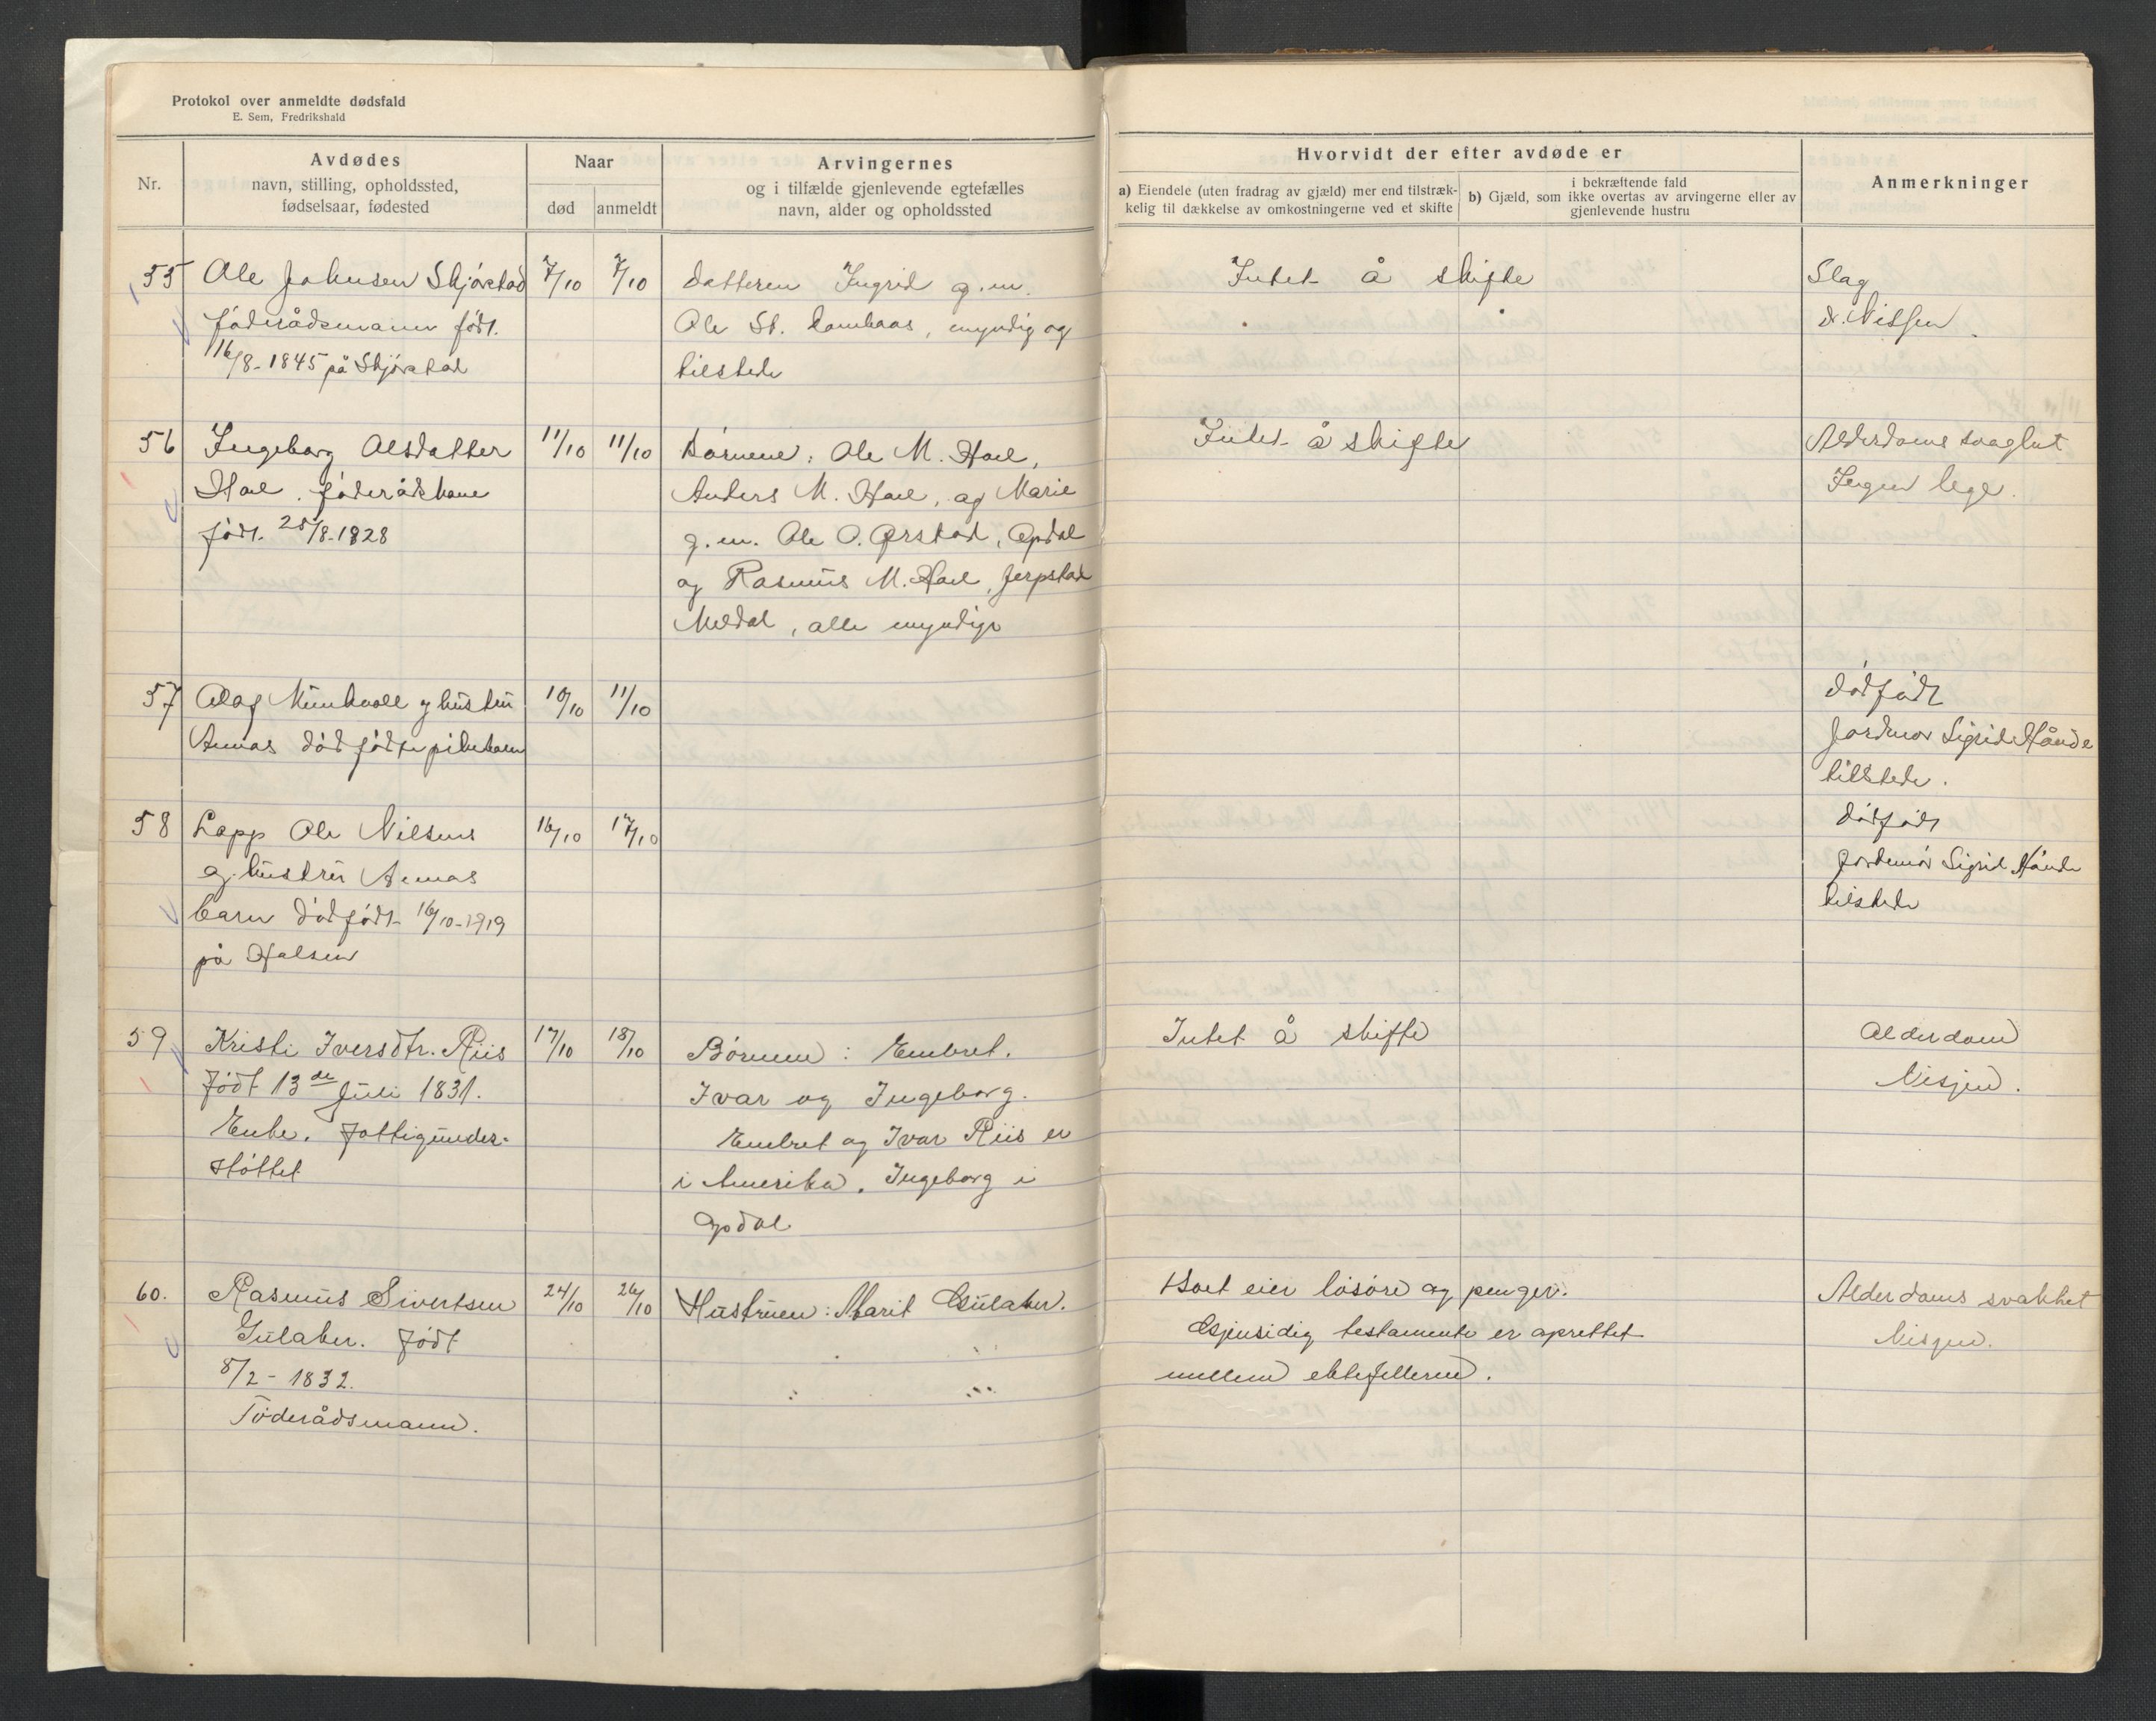 Protokol over anmeldte dødsfald
E. Sem, Fredrikshald
Nr.
Avdødes
navn, stilling, opholdssted,
fødselsaar, fødested
Naar
død
anmeldt
Arvingernes
og i tilfælde gjenlevende egtefælles
navn, alder og opholdssted
Hvorvidt der efter avdøde er
a) Eiendele (uten fradrag av gjæld) mer end tilstræk-
kelig til dækkelse av omkostningerne ved et skifte
i bekræftende fald
b) Gjæld, som ikke overtas av arvingerne eller av
gjenlevende hustru
Anmerkninger
55 Ole Johnsen Skjørstad 7/10 7/10 datteren Ingrid g.m. Intet å skifte Slag
föderådsmann født. Ole St. myndig og dr. Nissen.
16/8-1845 på Skjørstad tilstede
56 Ingeborg Olsdatter 11/10 11/10 Börnene: Ole M. Hoel, Intet å skifte Alderdoms svaghet
Hoel. föderådskone Anders M. Hoel, og Marie Ingen lege.
født. 25/8-1828 g.m. Ole O. Ørstad, Opdal
og Rasmus M. Hoel, Jerpstad
Meldal, alle myndige
57 Olaf Munkvoll og hustru 10/10 11/10 dödfödt
Annas dödfödte pikebarn Jordmor Sigrid Hånde
tilstede.
58 Lapp Ole Nilsens 16/10 17/10 dödfödt
og hustru Annas Jordemor Sigrid Hånde
barn dödfödt 16/10-1919 tilstede
på Halsen
59 Kristi Iversdtr. Riis 17/10 18/10 Børnene: Embret. Intet å skifte Alderdom
Født 13de Juli 1831. Ivar og Ingeborg. Nisjen.
Enke. Fattigunder- Embret og Ivar Riis er
støttet i Amerika. Ingeborg i
Opdal
60. Rasmus Sivertsen 24/10 26/10 Hustruen: Marit Gulaker. Boet eier løsøre og penger. Alderdoms svakhet
Gulaker. Født Gjensidig testamente er oprettet Nisjen.
8/2-1832. mellem ektefellerne.
Föderådsmann.